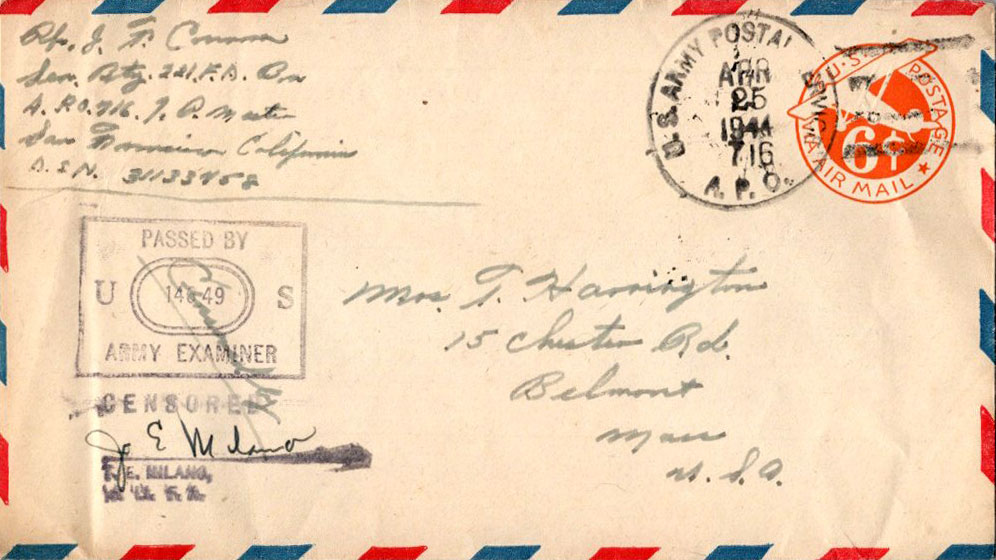 J. F. Connor
Ser. Btry. 221 F.A. Bn
A.P.O. 716. % P. Master
San Francisco California
A.S.N. 31133458
U.S. ARMY POSTAL
APR
25
1944
716
A. P. O.
U.S. POSTAGE
6¢
VIA AIR MAIL
PASSED BY
U S
ARMY EXAMINER
CENSORED
J. E. Milano
MILANO,
Mrs. T. Harrington
15 Chester Rd.
Belmont
Mass
U.S.A.